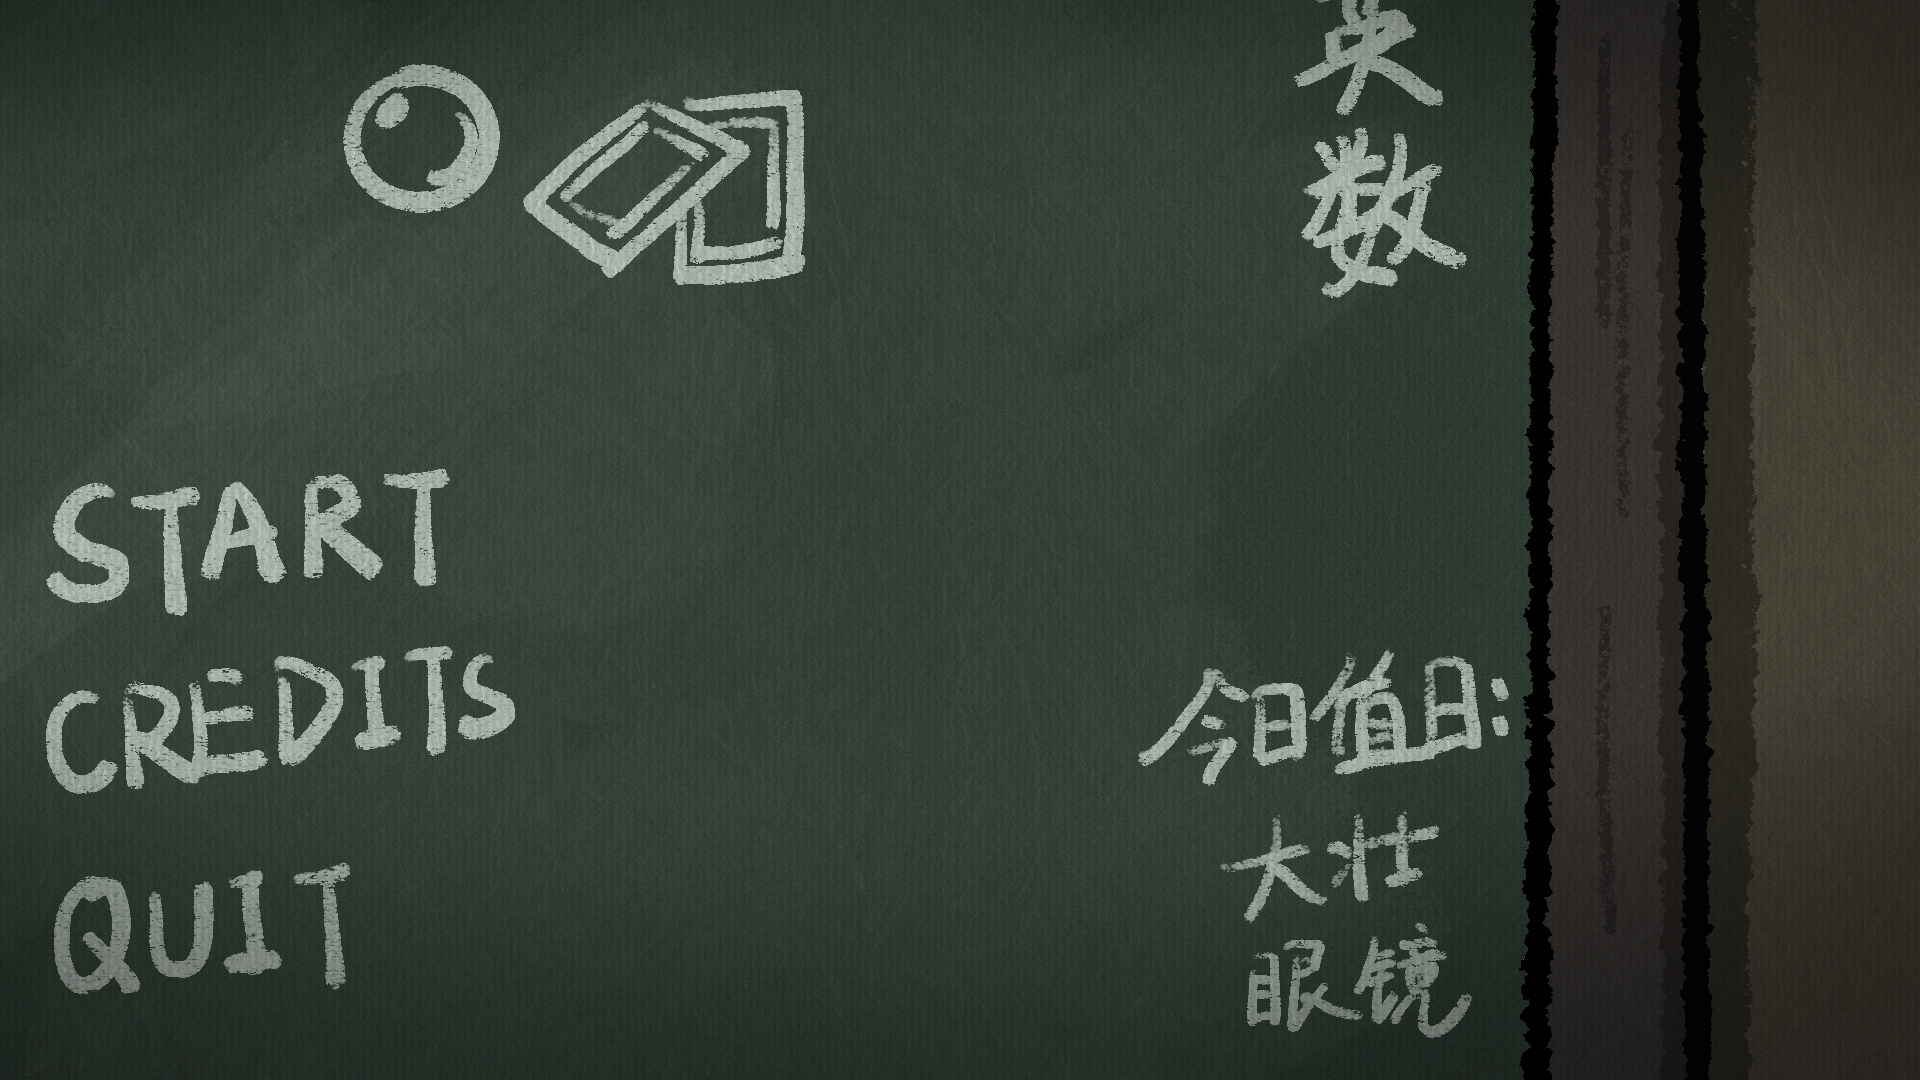 英
数
START
CREDITS
QUIT
今日值日:
大壮
眼镜